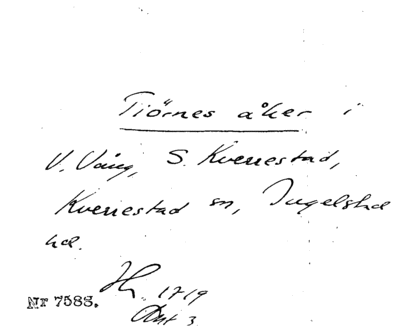 Tiörnes åker i
V. Vång, S. Kverrestad,
Kverrestad sn, Ingelstad
hd.
1719
Akt 3
Nr 7583.